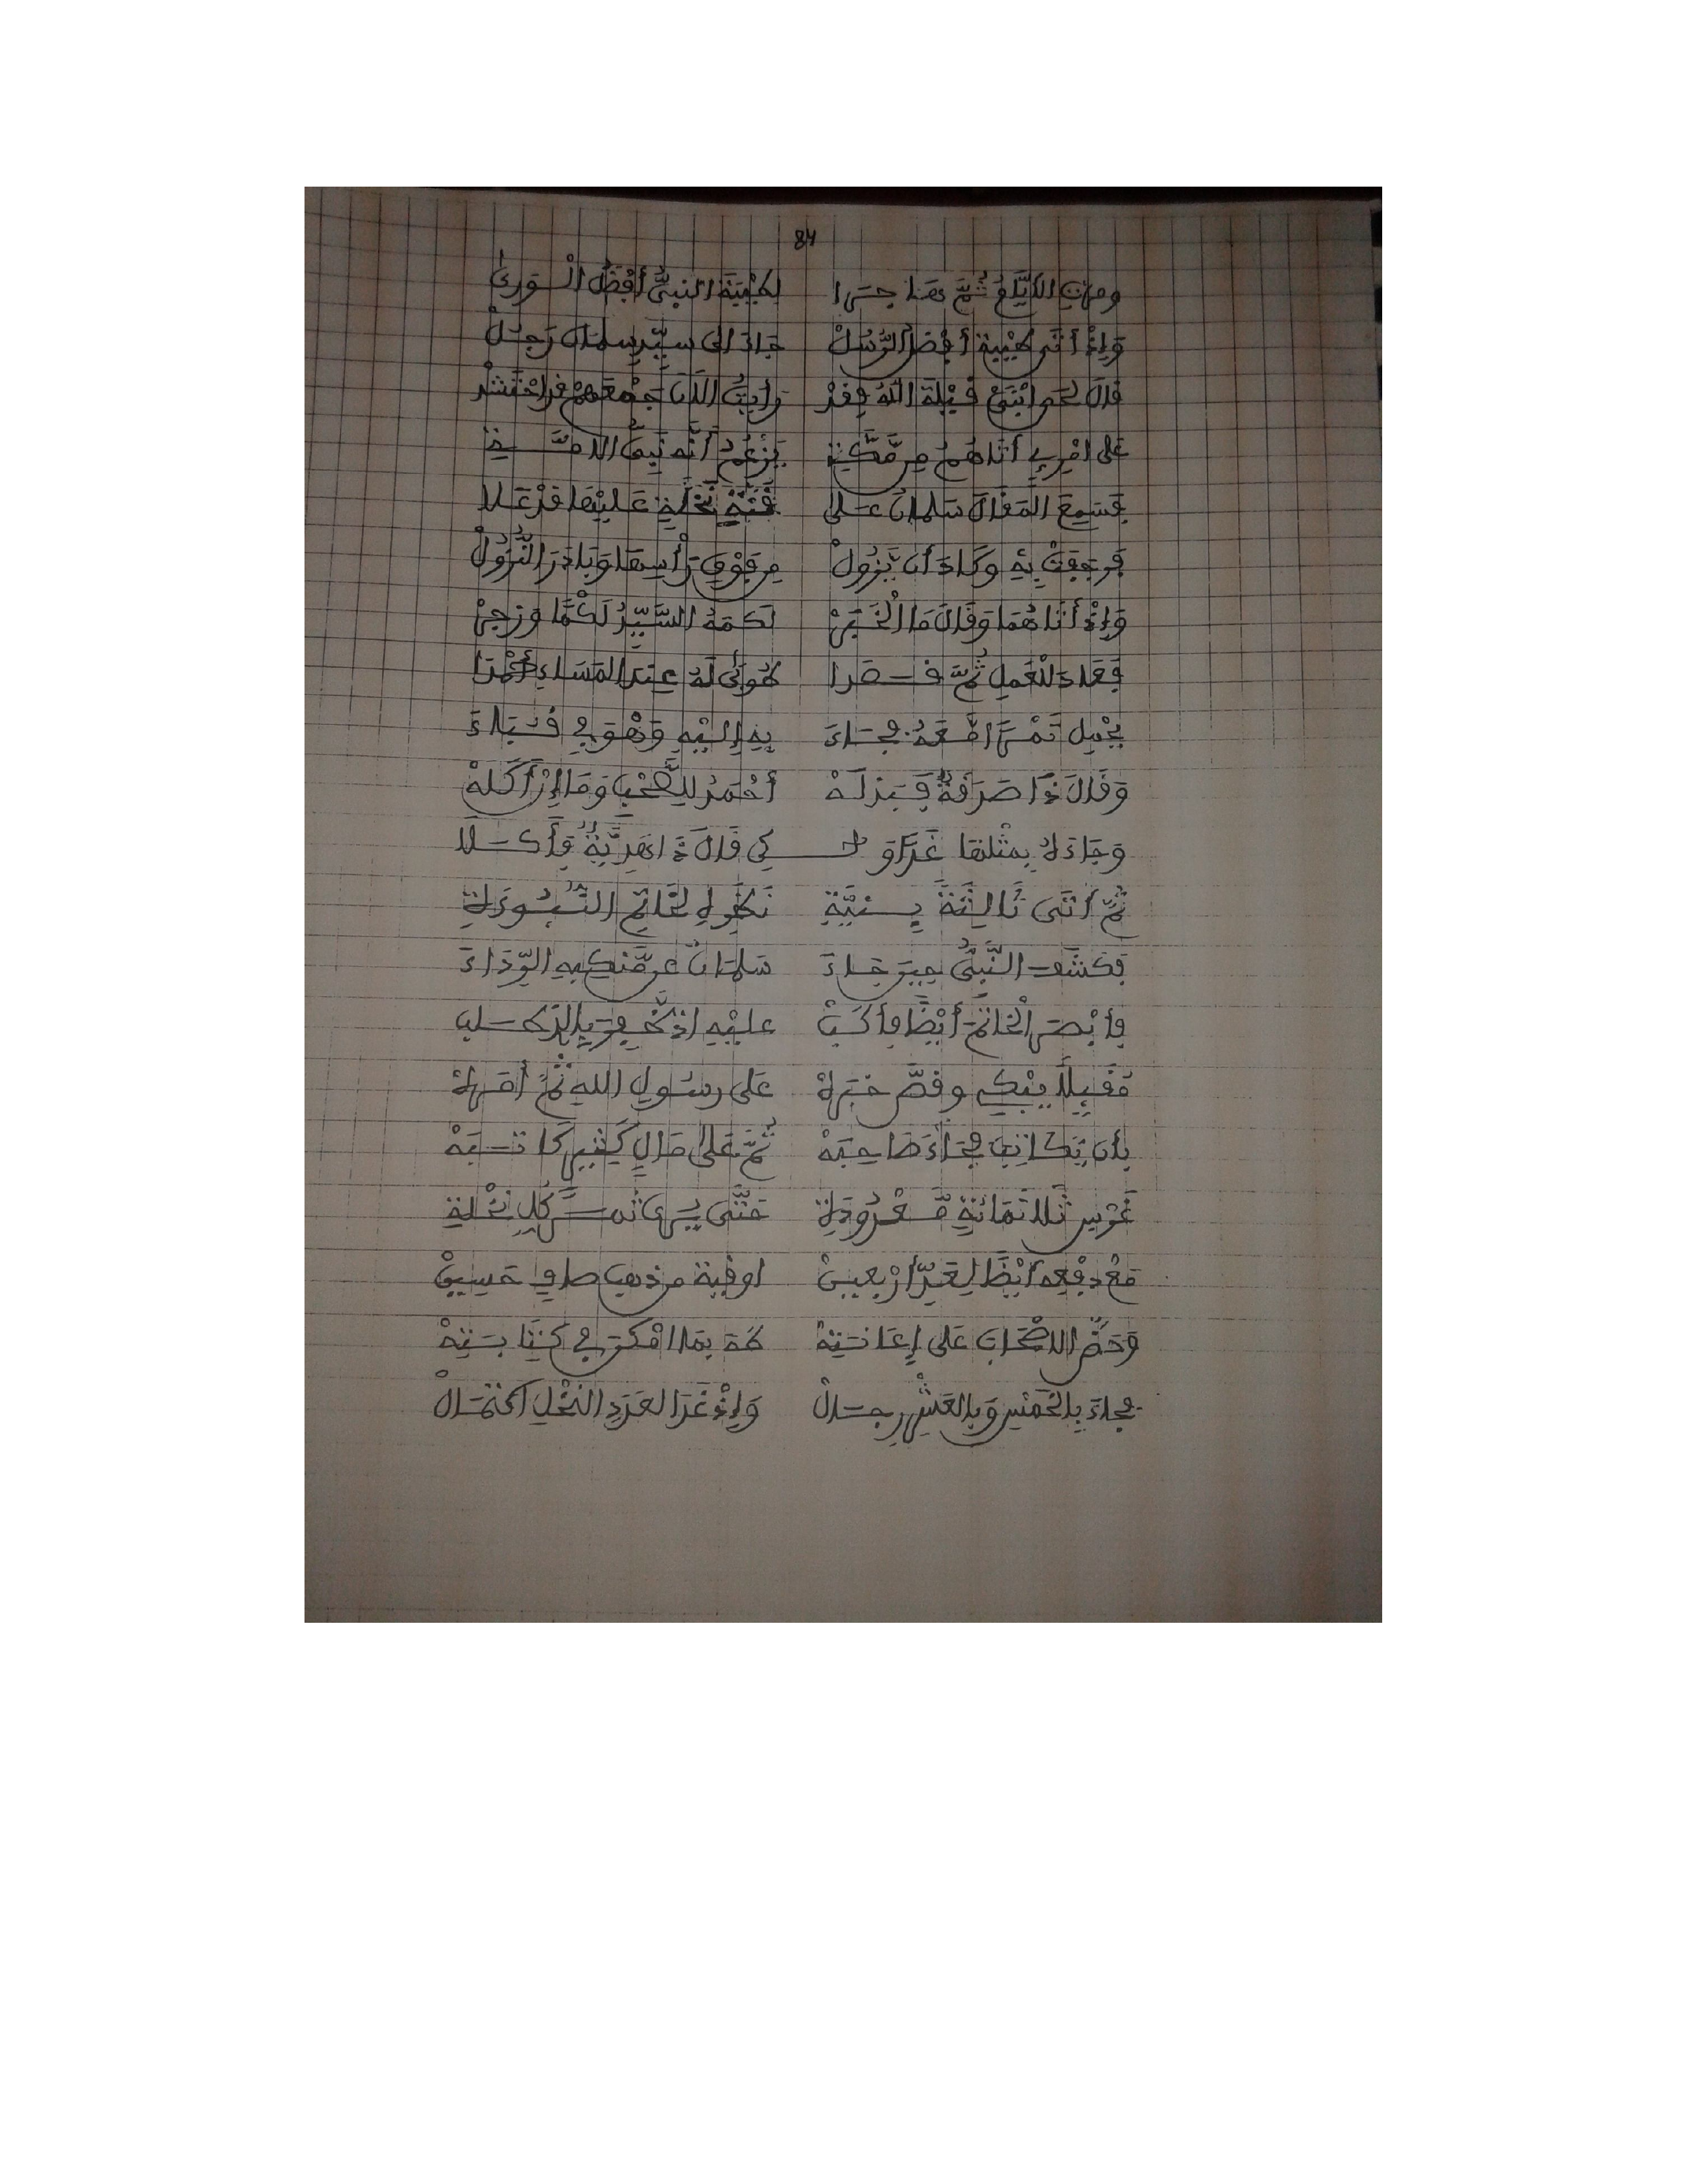 84
ومرت الأيام ثم هاجرا لطيبة النبي أفضل الورى
وَإِذْ أتى طيبة أفضل الرُّسُلْ جاءَ الى سيد سلمان رَجُلْ
قال لحى ابْنَيْ قَيْلَة اللهُ فقدْ رأيتُ الآنَ جمعهم قد احتشدْ
على امْرِئٍ أتاهُمُ من مَّكَّةِ يَزْعُمُ أنَّه نَبِيُّ الامَّةِ
فَسَمِعَ المَقَالَ سَلمانُ عَلى قُنَّةِ نَخْلَةٍ عَلَيْهَا قَدْ عَلا
فرجفتْ بِهِ وَكَادَ أن يَّزُولْ من فَوْقِ رَأسِهَا وَبَادَرَ النُّزُولْ
وَإِذْ أتاهُمَا وَقَالَ مَا الْخَبَرْ لَكَمَهُ السَّيِّدُ لَكْمًا وزجرْ
فَعَادَ لْلْعَمَلِ ثُمَّ قصدا طُوبَى لَهُ عِندَ المَسَاءِ أَحْمَدَا
يحْمِل تَمْرًا مَّعَهُ فجاءَ بِهِ إِلَيْهِ وَهْوَ في قُبَاءَ
وَقَالَ ذَا صَدَقَةٌ فَبَذلَهْ أَحْمَدُ للصَّحْبِ وَمَا إنْ أَكَلَهْ
وَجَاءَهُ بِمثْلهَا غَدًا و كي قَالَ ذَا هَدِيَّةٌ فَأَكَلا
ثُمَّ أتَى ثَالِثَةً بِنِيَّةِ نَظَرِهِ لخَاتِمِ النُّبُوءَةِ
فكشَفَ النَّبِيُّ حِينَ جَاءَ سَلمَانُ عن مَّنكِبِهِ الرِّدَاءَ
فأبْصَرَ الْخاتمَ أيْضًا فأكَبْ عليْهِ إذ ظَّفِرَ بِالَّذي طلب
مُقَبِّلًا يبْكي وقصَّ خبرَهْ عَلى رسُولِ اللهِ ثُمَّ أمَرَهْ
بِأن يُكَاتِبَ فجَاءَ صَاحِبَهْ ثُمَّ عَلى مَالٍ كَثِيرٍ كَاتَبَهْ
غَرْسِ ثَلاثمَائةٍ مَّعْدُودَةِ حَتَّى يرى ثَمَرَ كُلِّ نَخْلَةِ
مَعْ دفْعِهِ أيْضًا لِعَدِّ أرْبعينْ اوقية من ذهب صافٍ حَسِينْ
وَحَضَّ الاصْحَابَ عَلى إعَانَتِهْ طَهَ بمَا امْكَنَ في كِتَابَتِهْ
فجاءَ بِالخَمْسِ وَبِالعَشْرِ رِجَالْ وَإِذْ غَدَا لعَدَدِ النَّخْلِ اكْتمَالْ